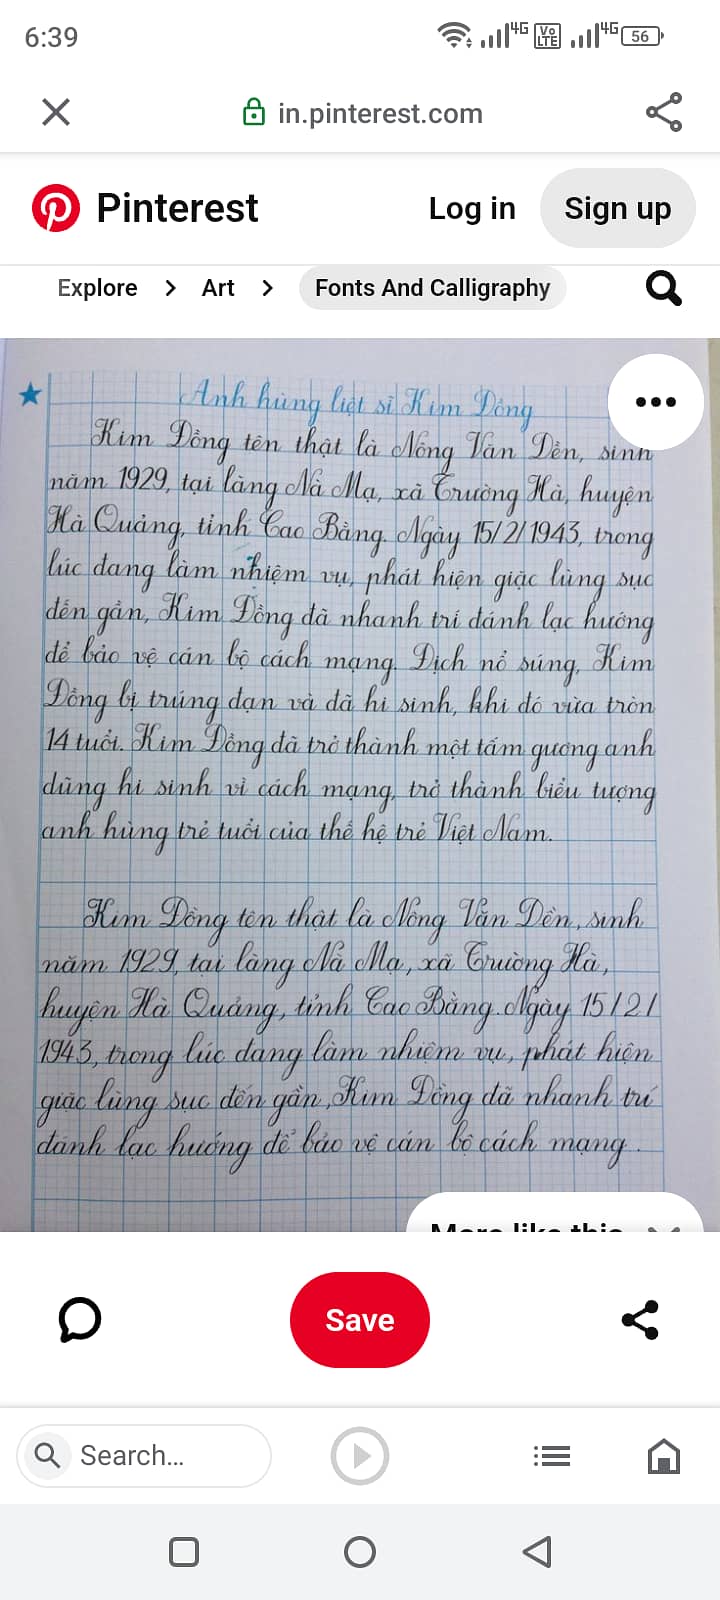 6:39
4G
Vo
LTE
4G
56
in.pinterest.com
Pinterest
Log in
Sign up
Explore
Art
Fonts And Calligraphy
Anh hùng liệt sĩ Kim Đồng
Kim Đồng tên thật là Nông Văn Dền, sinh
năm 1929, tại làng Nà Mạ, xã Trường Hà, huyện
Hà Quảng, tỉnh Cao Bằng. Ngày 15/2/1943, trong
lúc đang làm nhiệm vụ, phát hiện giặc lùng sục
đến gần, Kim Đồng đã nhanh trí đánh lạc hướng
để bảo vệ cán bộ cách mạng. Địch nổ súng, Kim
Đồng bị trúng đạn và đã hi sinh, khi đó vừa tròn
14 tuổi. Kim Đồng đã trở thành một tấm gương anh
dũng hi sinh vì cách mạng, trở thành biểu tượng
anh hùng trẻ tuổi của thế hệ trẻ Việt Nam.
Kim Đồng tên thật là Nông Văn Dền, sinh
năm 1929, tại làng Nà Mạ, xã Trường Hà,
huyện Hà Quảng, tỉnh Cao Bằng. Ngày 15/2/
1943, trong lúc đang làm nhiệm vụ, phát hiện
giặc lùng sục đến gần, Kim Đồng đã nhanh trí
đánh lạc hướng để bảo vệ cán bộ cách mạng.
More like this
Save
Search...